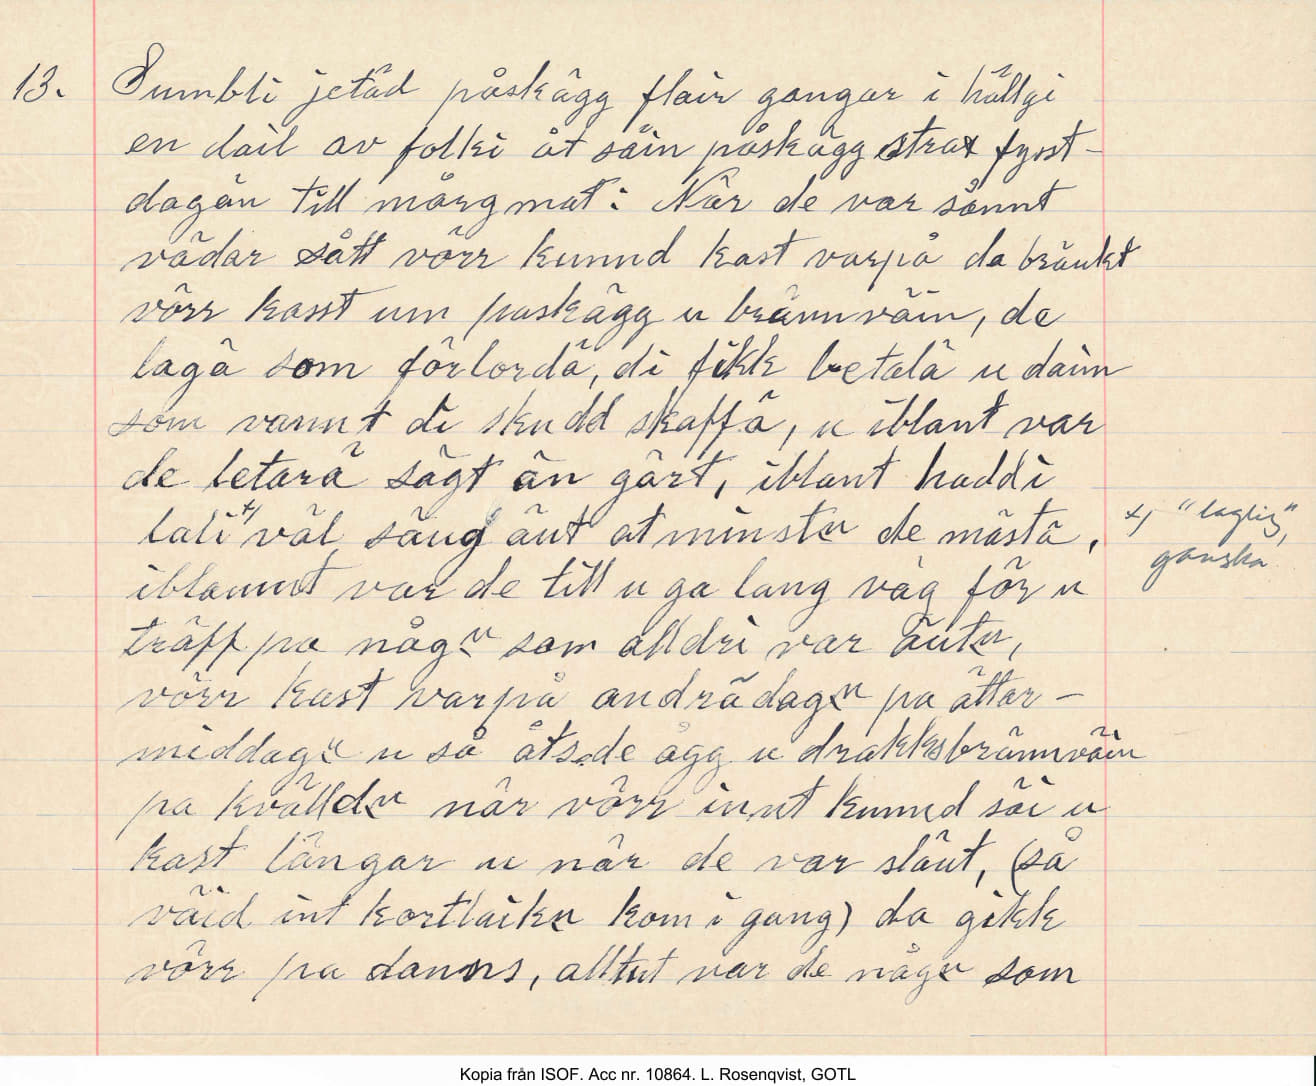 13. Sumbli jetäd påskägg flair gangar i hällgi
en dail av folki åt säin påskägg strax fyost-
dagän till mårgmat: När de var sånnt
vädar sått vörr kunnd kast varpå da bräukt
vörr kasst um paskägg u brännväin, de
lagä som förlordä, di fikk betalä u daim
som vannt di skudd skaffä, u iblant var
de letarä sägt än gärt, iblant haddi
lali x) väl säug äut at minstn de mästä,
x) "laglig",
ganska
iblannt var de till u ga lang väg för u
träff pa någn som alldri var äutn,
vörr kast varpå andrädagn pa ättar-
middagn u så åts de ägg u drakks brännväin
pa kvälldn när vörr innt kunnd säi u
kast längar u när de var släut, (så
väid int kortlaikn kom i gang) da gikk
vörr pa danns, alltut var de någn som
Kopia från ISOF. Acc nr. 10864. L. Rosenqvist, GOTL